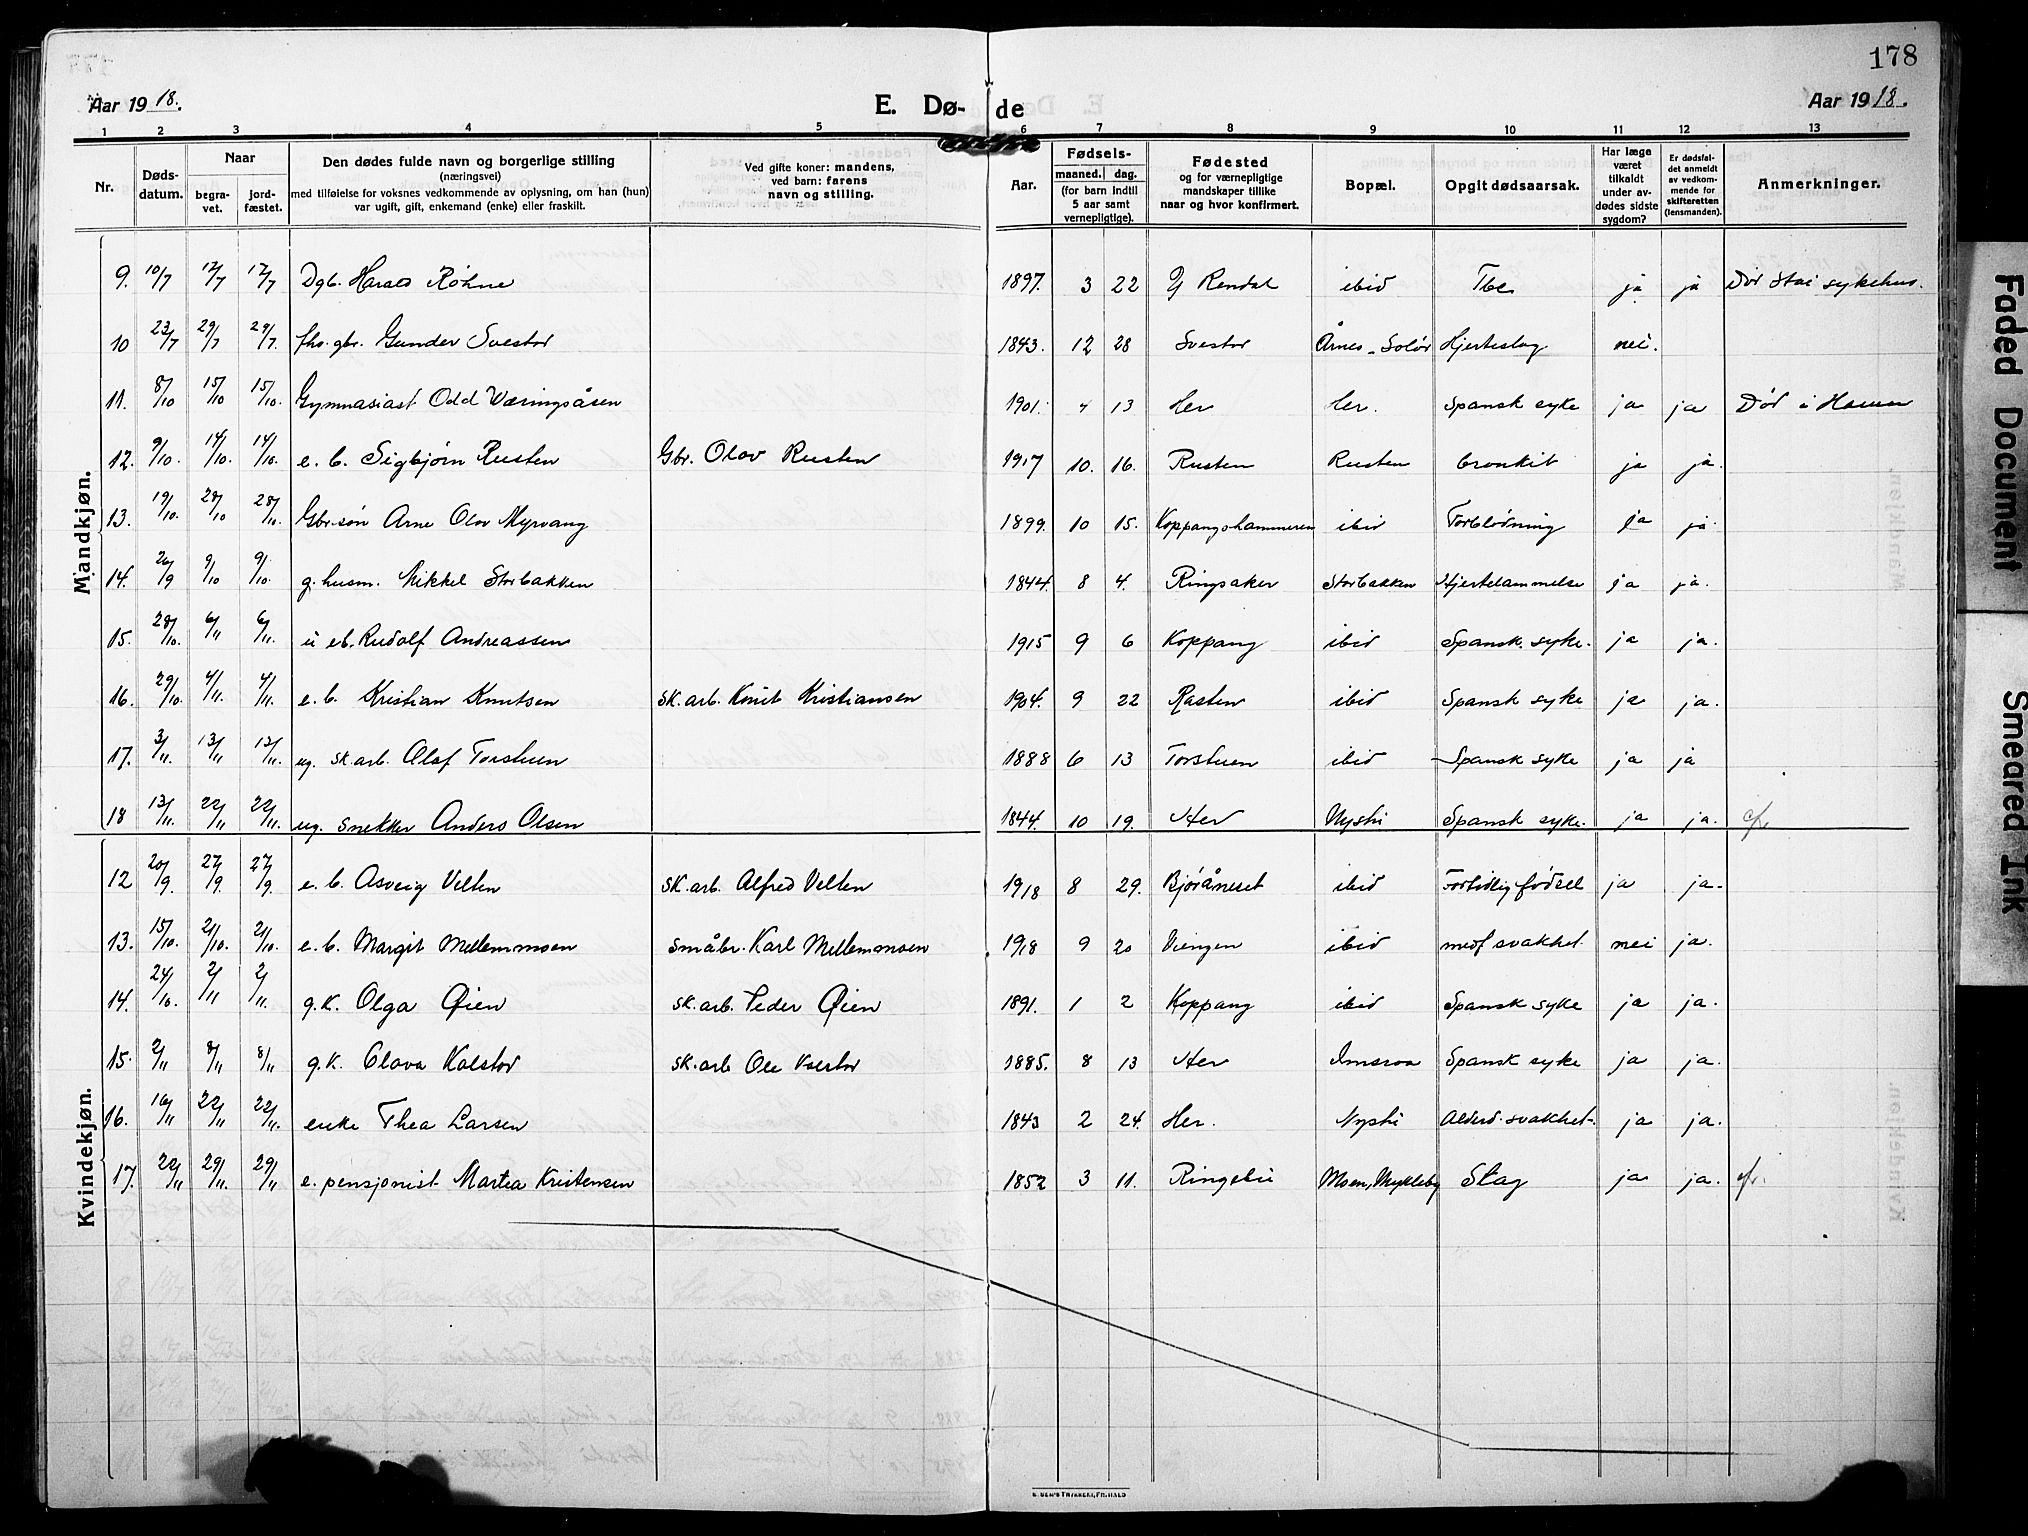 178
Aar 1918.
E. Dø- de
Aar 1918.
1 2 3 4 5 6 7 8 9 10 11 12 13
Nr.
Døds-
datum.
Naar
begra-
vet.
jord-
fæstet.
Den dødes fulde navn og borgerlige stilling
(næringsvei)
med tilføielse for voksnes vedkommende av oplysning, om han (hun)
var ugift, gift, enkemand (enke) eller fraskilt.
Ved gifte koner: mandens,
ved barn: farens
navn og stilling.
Aar.
Fødsels-
maaned. dag.
(for barn indtil
5 aar samt
vernepligtige).
Fødested
og for værnepligtige
mandskaper tillike
naar og hvor konfirmert.
Bopæl.
Opgit dødsaarsak.
Har læge
været
tilkaldt
under av-
dødes sidste
sygdom?
Er dødsfal-
det anmeldt
av vedkom-
mende for
skifteretten
(lensmanden).
Anmerkninger.
Mandkjøn.
9. 10/7 17/7 17/7 Dgb. Harald Röhne 1897. 3 22 Y Rendal ibid Tbc ja ja Död Stai sykehus.
10 23/7 29/7 29/7. fhv. gbr. Gunder Svestad 1843. 12 28 Svestad Årnes - Solør Hjerteslag nei.
11. 8/10 15/10 15/10. Gymnasiast Odd Væringsåsen 1901. 4 13 Her Her. Spansk syke ja ja Död i Hamar
12. 9/10. 14/10. 14/10. e. b. Sigbjørn Rusten Gbr. Olov Rusten 1917 10. 16. Rusten Rusten bronkit ja ja.
13. 19/10. 28/10 28/10. Gbr.søn Arne Olov Myrvang 1899. 10 15. Koppangshammeren ibid Forblödning ja ja.
14. 26/9 9/10 9/10. g. husm. Mikkel Storbakken 1844. 8 4. Ringsaker Storbakken Hjertelammelse ja ja.
15. 28/10. 6/11 6/11. u eb. Rudolf Andreassen 1915 9 6 Koppang ibid Spansk. syke. ja ja.
16. 29/10. 4/11. 4/11. e. b. Kristian Knutsen sk. arb. Knut Kristiansen 1904. 9 22 Rasten ibid Spansk syke ja ja.
17. 3/11. 13/11 13/11. ug. sk. arb. Olaf Torstuen 1888 6 13 Torstuen ibid Spansk syke ja ja
18 13/11. 22/11 22/11. ug. snekker Anders Olsen 1844. 10 19. Her Nysti Spansk syke. ja ja.
Kvindekjøn.
12 20/9. 27/9. 27/9. e. b. Asveig Velten sk. arb. Alfred Velten 1918 8 29. Bjøråneset ibid Fortidlig födsel ja ja.
13. 15/10. 21/10. 21/10. e. b. Margit Mellemmoen småbr. Karl Mellemmoen 1918 9 20 Viengen ibid medf svakhet. nei ja.
14. 24/10. 2/11 2/11. g. k. Olga Øien sk. arb. Peder Øien 1891. 1 2 Koppang ibid Spansk syke ja ja.
15. 2/11 8/11 8/11 g. k. Olava Kolstad sk. arb Ole Kolstad 1885. 8 13 Her Imsroa Spansk syke ja ja.
16. 16/11 22/11 22/11. enke Thea Larsen 1843 2 24. Her. Nysti Alderd. svakhet. ja ja.
17. 22/11 29/11. 29/11 e. pensjonist Martea Kristensen 1852 3 11. Ringebu Moen, Mykleby Slag ja ja.
Faded Document
Smeared Ink